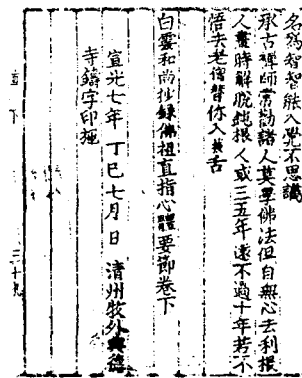 名為智智能入覺不思議
承古禪師常勸諸人莫學佛法但自無心去利根
人晝時解脫鈍根人或三五年遠不過十年若不
悟去老僧替你入拔舌
白雲和尚抄錄佛祖直指心體要節卷下
宣光七年丁巳七月 日 清州牧外興德
寺鑄字印施
直下 三十九